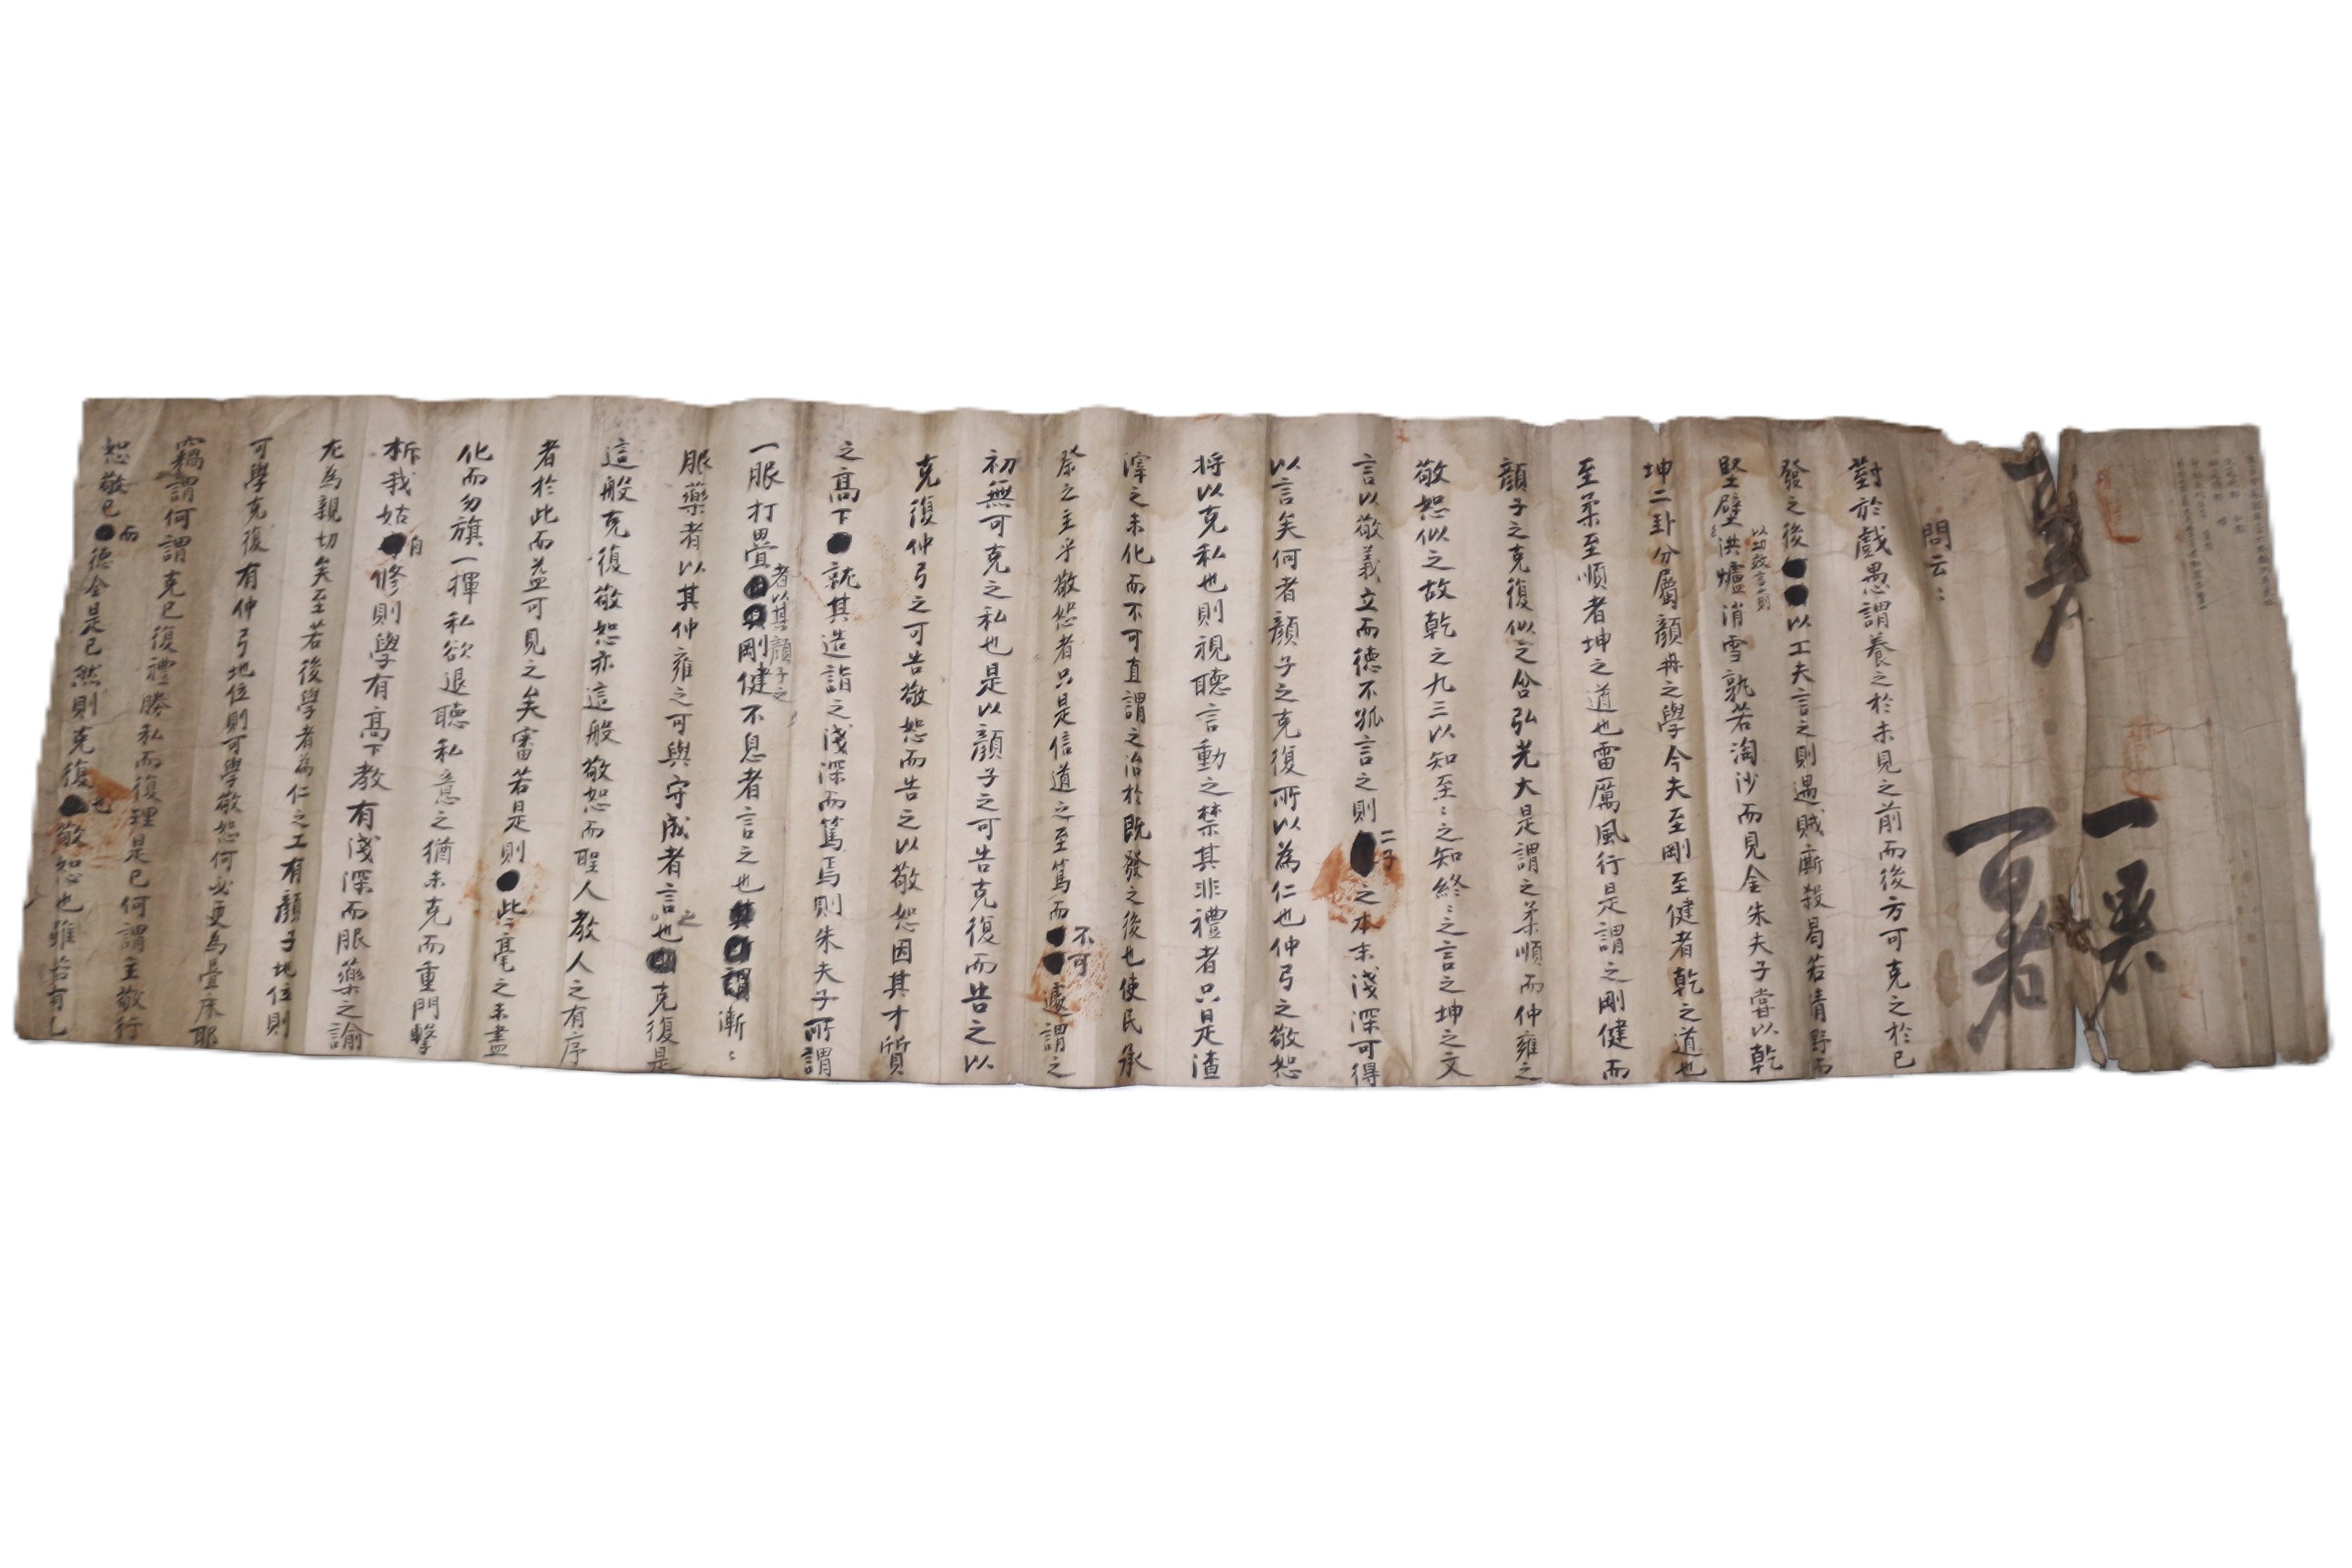 一
問云〻
對於戲愚謂養之於未見之前而後方可克之於已
發之後以工夫言之則遇賊廝殺曷若淸野而
堅壁洪爐消雪孰若淘沙而見金朱夫子嘗以乾
以功效言則
坤二卦分屬顔冉之學今夫至剛至健者乾之道也
至柔至順者坤之道也雷厲風行是謂之剛健而
顔子之克復似之含弘光大是謂之柔順而仲雍之
敬恕似之故乾之九三以知至〻之知終〻之言之坤之文
言以敬義立而德不孤言之則二子之本末淺深可得
以言矣何者顔子之克復所以為仁也仲弓之敬恕
將以克私也則視聽言動之禁其非禮者只是渣
滓之未化而不可直謂之治於旣發之後也使民承
祭之主乎敬恕者只是信道之至篤而不可遽謂之
初無可克之私也是以顔子之可告克復而告之以
克復仲弓之可告敬恕而告之以敬恕因其才質
之高下就其造詣之淺深而篤焉則朱夫子所謂
一服打疊者以其顔子之剛健不息者言之也漸〻
服藥者以其仲雍之可與守成者言之也克復是
這般克復敬恕亦這般敬恕而聖人敎人之有序
者於此而益可見之矣審若是則此毫之未盡
化而勿旗一揮私欲退聽私意之猶未克而重門擊
柝我姑自修則學有高下敎有淺深而服藥之諭
尤為親切矣至若後學者為仁之工有顔子地位則
可學克復有仲弓地位則可學敬恕何必更為疊床耶
竊謂何謂克已復禮勝私而復理是已何謂主敬行
恕敬已而德全是已然則克復也敬恕也雖若有